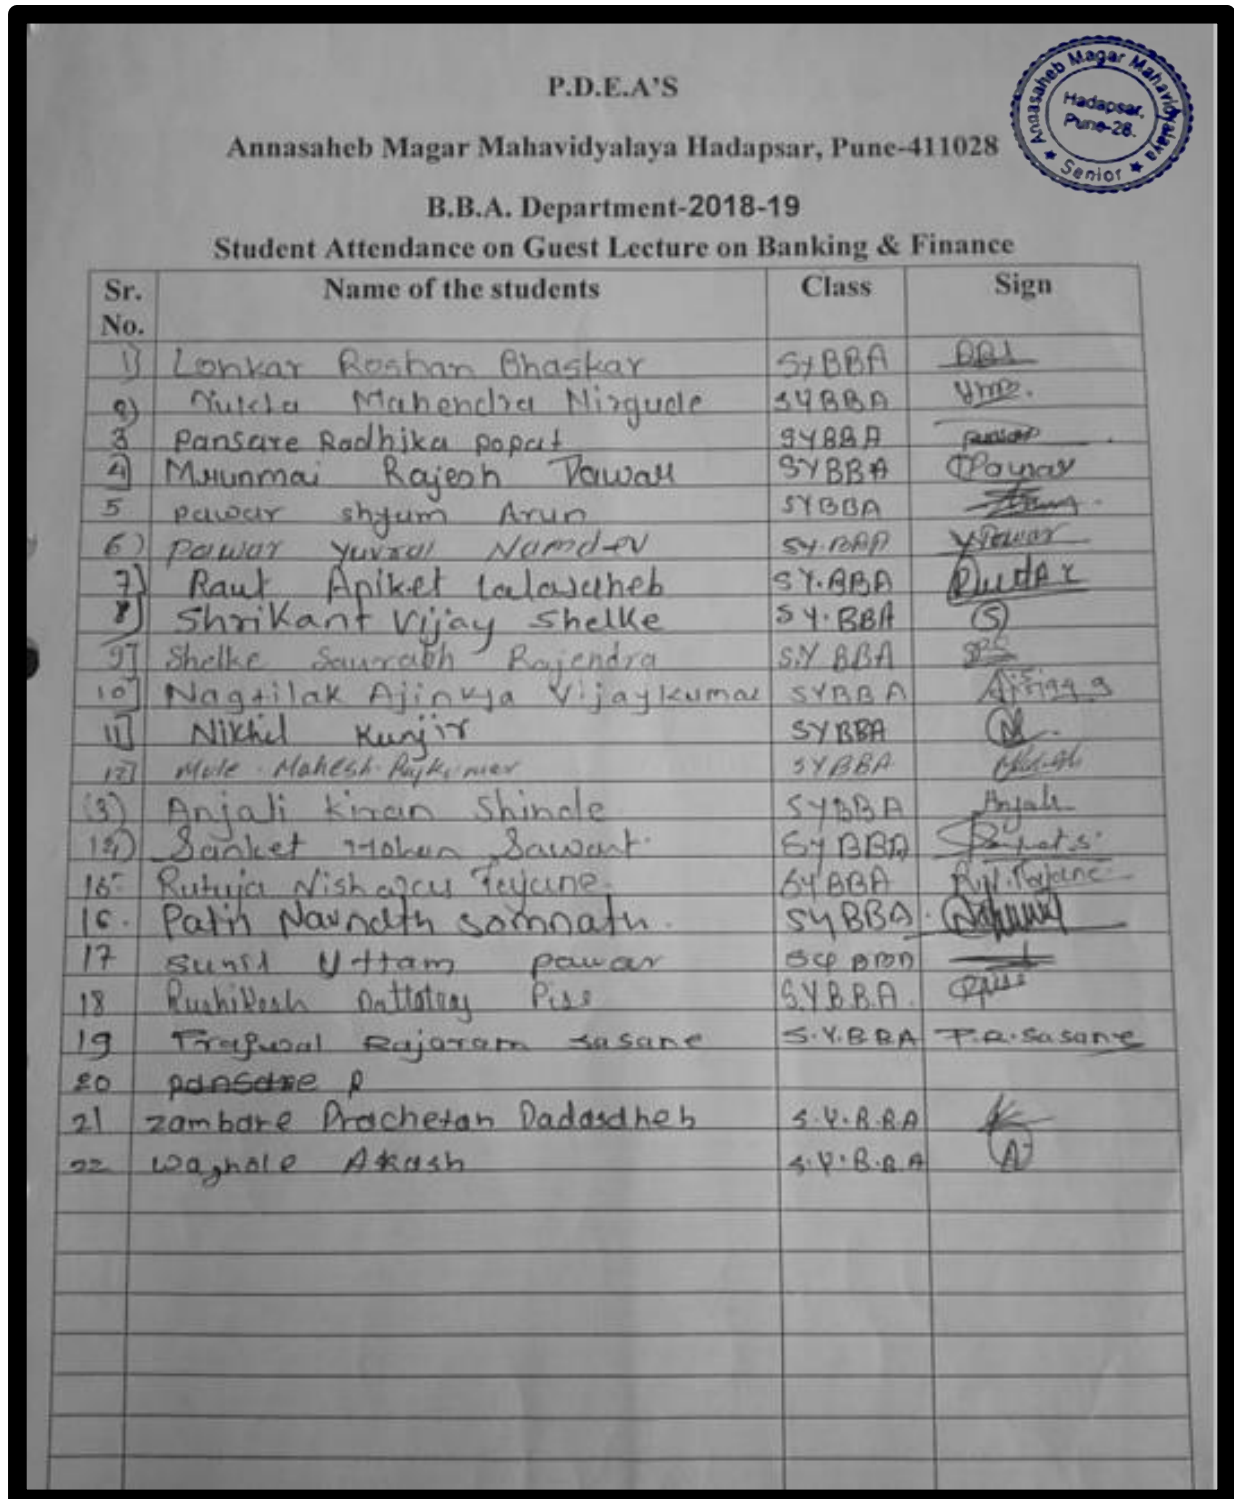 P.D.E.A'S
Annasaheb Magar Mahavidyalaya
Hadapsar,
Pune-28.
Senior
Annasaheb Magar Mahavidyalaya Hadapsar, Pune-411028
B.B.A. Department-2018-19
Student Attendance on Guest Lecture on Banking & Finance
Sr. No. Name of the students Class Sign
1) Lonkar Roshan Bhaskar SYBBA
2) Mahendra Nirgude SYBBA
3 Pansare Radhika popat SYBBA
4) Mrunmai Rajesh Pawar SYBBA Pawar
5 pawar shyam Arun SYBBA
6) pawar yuvraj Namdev SY.BBA YPawar
7) Raut Aniket Lalasaheb SY.BBA
8) Shrikant Vijay Shelke SY.BBA S
9] Shelke Saurabh Rajendra S.Y BBA
10] Nagtilak Ajinkya Vijaykumar SYBBA
11] Nikhil Kunjir SYBBA
12] Mule Mahesh Rajkumar SYBBA
13) Anjali Kiran Shinde SYBBA Anjali
14) Sanket Mohan Sawant. SYBBA
15 Rutuja Tejane. SYBBA
16. Patil Navnath somnath. SYBBA.
17 Sunil Uttam pawar
18 Rushikesh Dattatray Pise S.Y.B.B.A.
19 Rajaram sasane S.Y.BBA P.R.sasane
20 pansare P
21 zambare Prachetan Dadasaheb S.Y.B.B.A
22 waghole Akash S.Y.B.B.A A